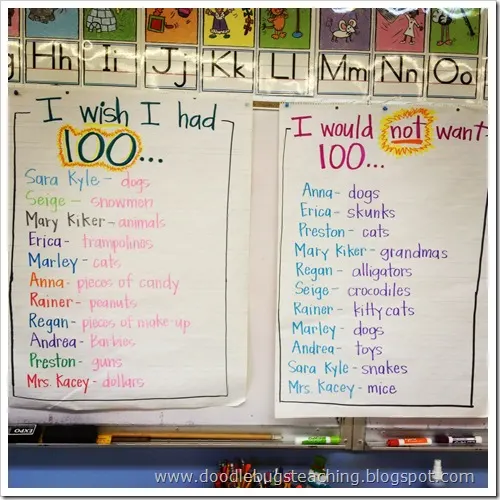 g Hh Ii Jj Kk Ll Mm Nn Oo
I wish I had
100...
Sara Kyle - dogs
Seige - snowmen
Mary Kiker - animals
Erica - trampolines
Marley - cats
Anna - pieces of candy
Rainer - peanuts
Regan - pieces of make-up
Andrea - Barbies
Preston - guns
Mrs. Kacey - dollars
I would not want
100...
Anna - dogs
Erica - skunks
Preston - cats
Mary Kiker - grandmas
Regan - alligators
Seige - crocodiles
Rainer - kitty cats
Marley - dogs
Andrea - toys
Sara Kyle - snakes
Mrs. Kacey - mice
EXPO
www.doodlebugsteaching.blogspot.com